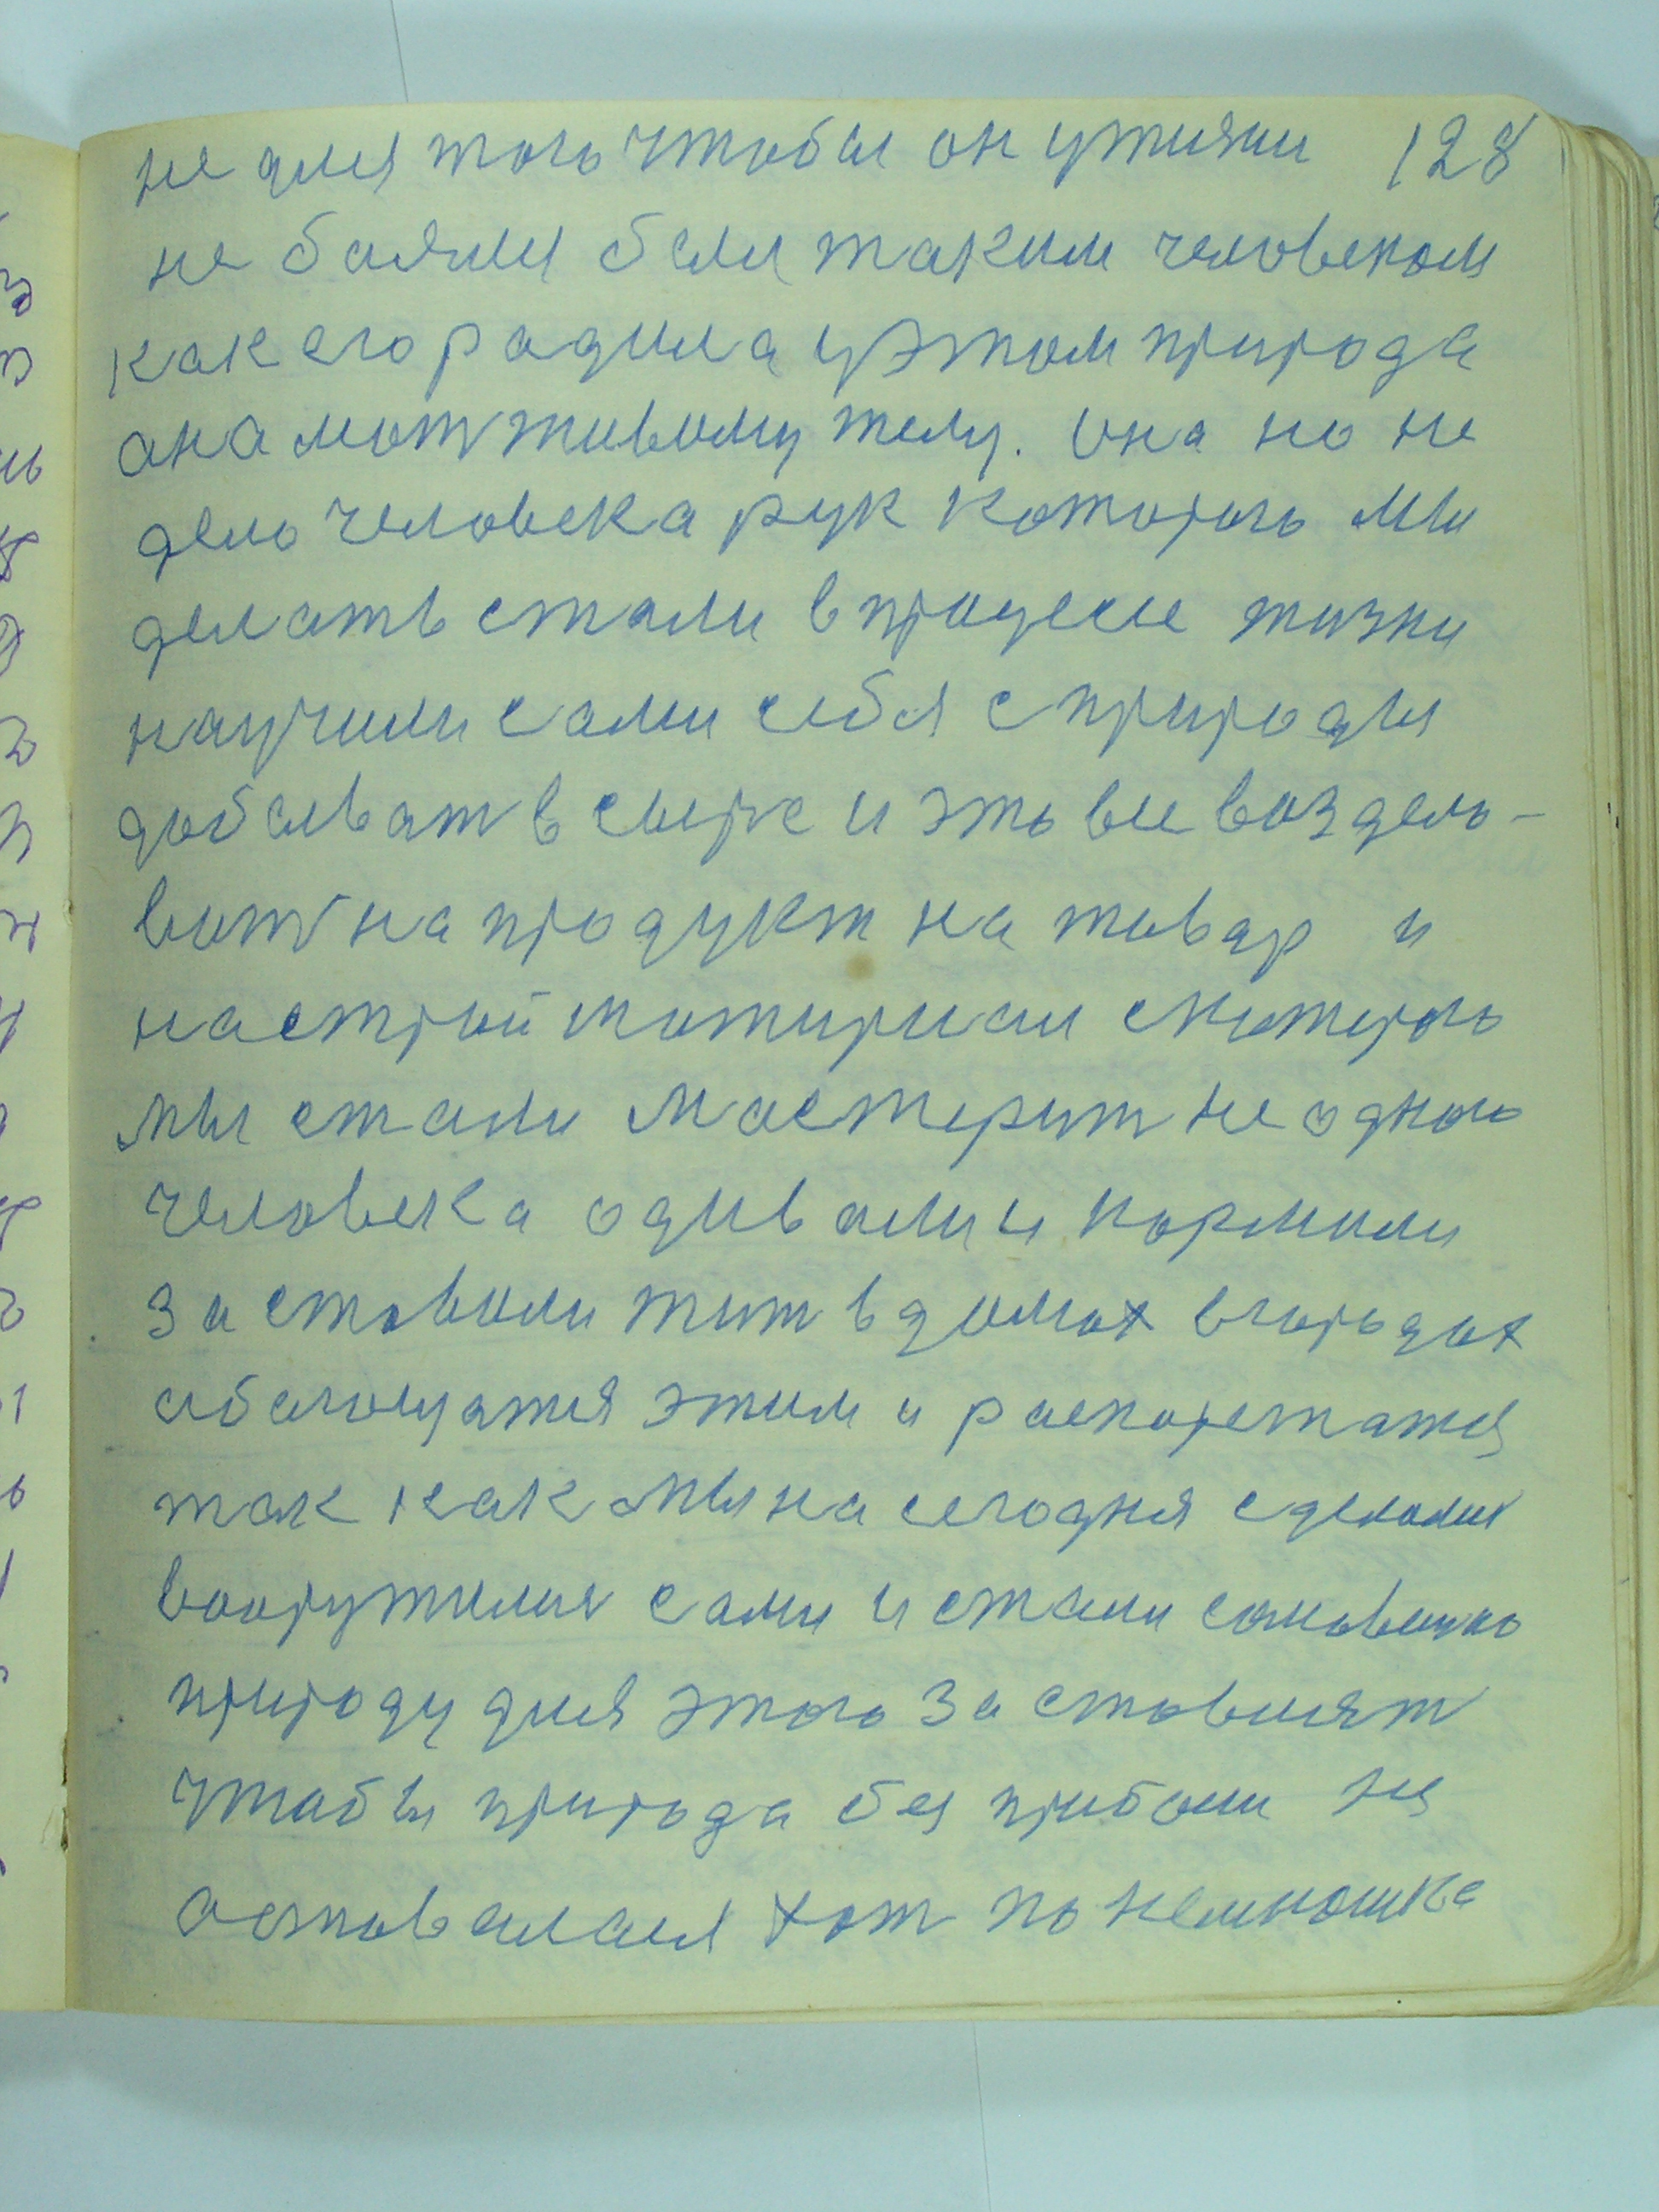 не для того чтобы он ужизни 128
не боялся был таким человеком
как его радила уэтом природа
она мот живому телу. Она но не
дело человека рук которого мы
делать стали в процесе жизни
научили сами себя с природы
добыват в сыре и это все воздело-
ват на продукт на товар и
на строй матириал с которого
мы стали мастерит не одного
человека одивали и кормили
заставили жит в домах в городах
обагощатся этим и распорежатся
так как мы на сегодня сделали
вооружилися сами и стали
природу для этого заставлят
чтобы природа без прибыли не
аставалася хот по немношке